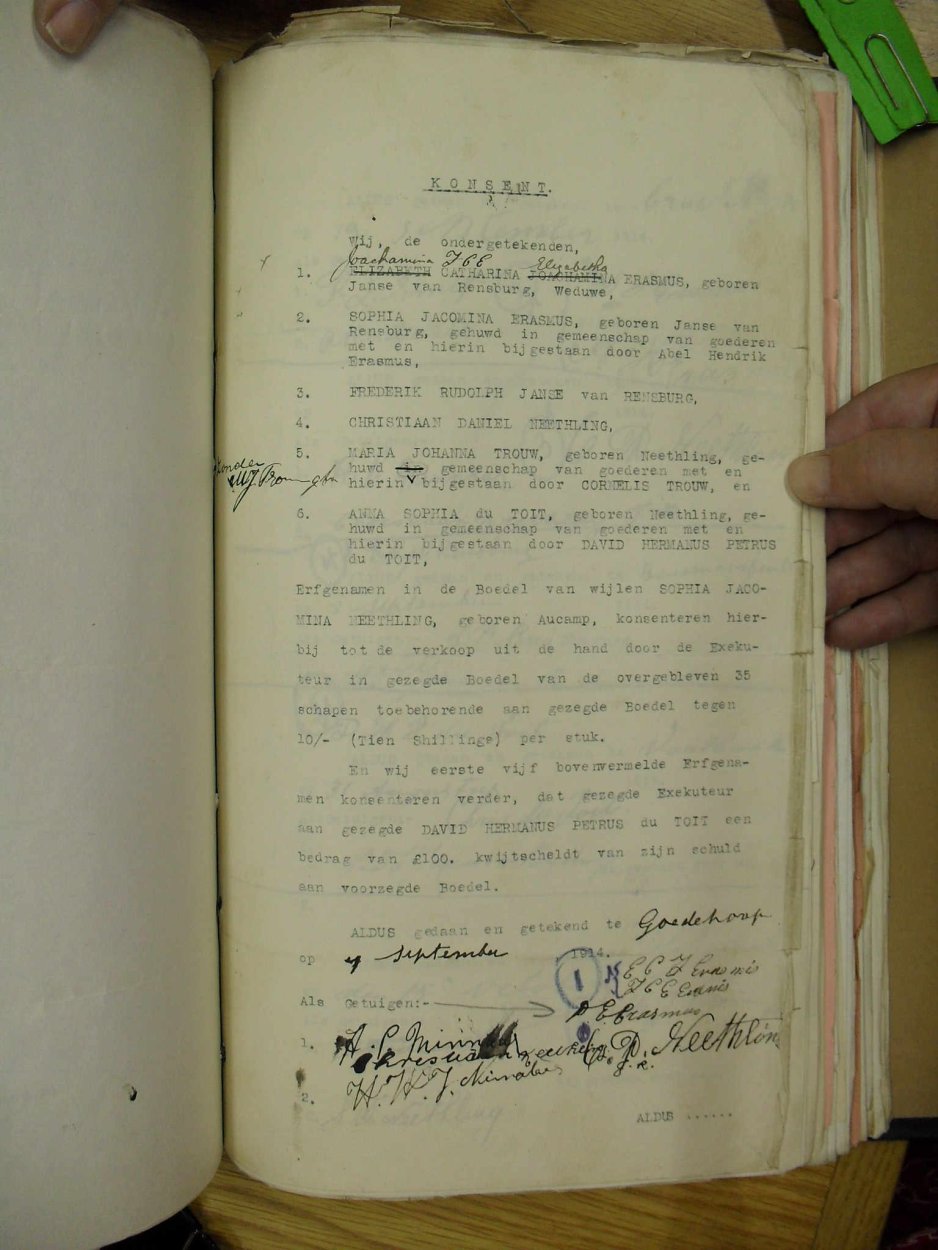 KONSENT.
Wij, de ondergetekenden,
Joachamina J C E Elizabetha
1. ELIZABETH CATHARINA JOACHAMINA ERASMUS, geboren
Janse van Rensburg, Weduwe,
2. SOPHIA JACOMINA ERASMUS, geboren Janse van
Rensburg, gehuwd in gemeenschap van goederen
met en hierin bijgestaan door Abel Hendrik
Erasmus,
3. FREDERIK RUDOLPH JANSE van RENSBURG,
4. CHRISTIAAN DANIEL NEETHLING,
5. MARIA JOHANNA TROUW, geboren Neethling, ge-
zonder
huwd in gemeenschap van goederen met en
MJ Trouw
hierin bijgestaan door CORNELIS TROUW, en
6. ANNA SOPHIA du TOIT, geboren Neethling, ge-
huwd in gemeenschap van goederen met en
hierin bijgestaan door DAVID HERMANUS PETRUS
du TOIT,
Erfgenamen in de Boedel van wijlen SOPHIA JACO-
MINA NEETHLING, geboren Aucamp, konsenteren hier-
bij tot de verkoop uit de hand door de Exeku-
teur in gezegde Boedel van de overgebleven 35
schapen toebehorende aan gezegde Boedel tegen
10/- (Tien Shillings) per stuk.
En wij eerste vijf bovenvermelde Erfgena-
men konsenteren verder, dat gezegde Exekuteur
aan gezegde DAVID HERMANUS PETRUS du TOIT een
bedrag van £100. kwijtscheldt van zijn schuld
aan voorzegde Boedel.
ALDUS gedaan en getekend te Goedehoop
op 4 September , 1914.
1 E C J Erasmis
J C E Erasmis
Als Getuigen:-
E Erasmus
1. A. C. Minn
C. D. Neethling
2. H. W. J.
ALDUS ......